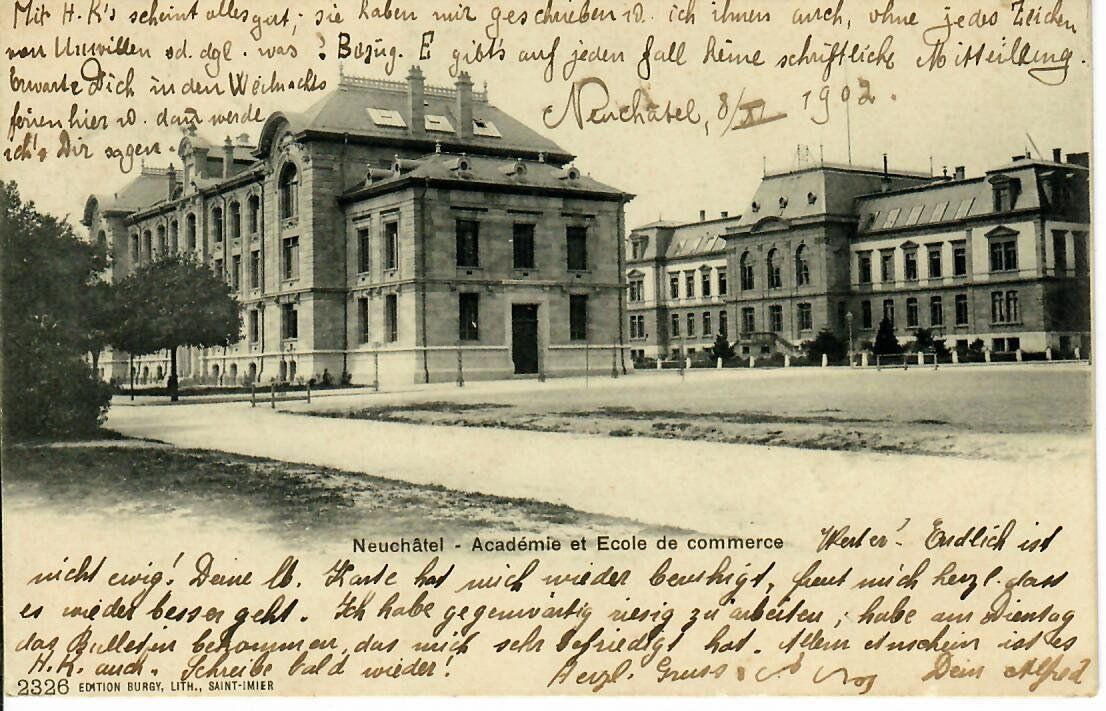 Mit H. K's scheint alles gut; sie haben mir geschrieben u. ich ihnen auch, ohne jedes Zeichen
von Unwillen od. dgl. was? Bezug. E gibt's auf jeden Fall keine schriftliche Mitteilung.
Erwarte Dich in den Weihnachts
ferien hier u. dann werde
ich's Dir sagen.
Neuchâtel, 8/XI 1902.
Neuchâtel - Académie et Ecole de commerce
Werter! Endlich ist
nicht ewig! Deine lb. Karte hat mich wieder beruhigt, freut mich herzl. dass
es wieder besser geht. Ich habe gegenwärtig riesig zu arbeiten, habe am Dienstag
das Bulletin bekommen, das mich sehr befriedigt hat. Allem Anschein ist es
H. K. auch. Schreibe bald wieder!
Herzl. Gruss
Dein Alfred
2326 EDITION BURGY, LITH., SAINT-IMIER